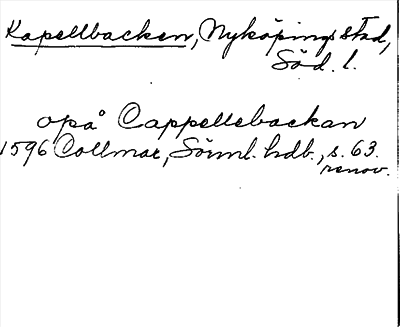 Kapellbacken, Nyköpings stad,
Söd. l.
opå Cappellebackan
1596 Collmar, Sörml. hdb., s. 63.
renov.